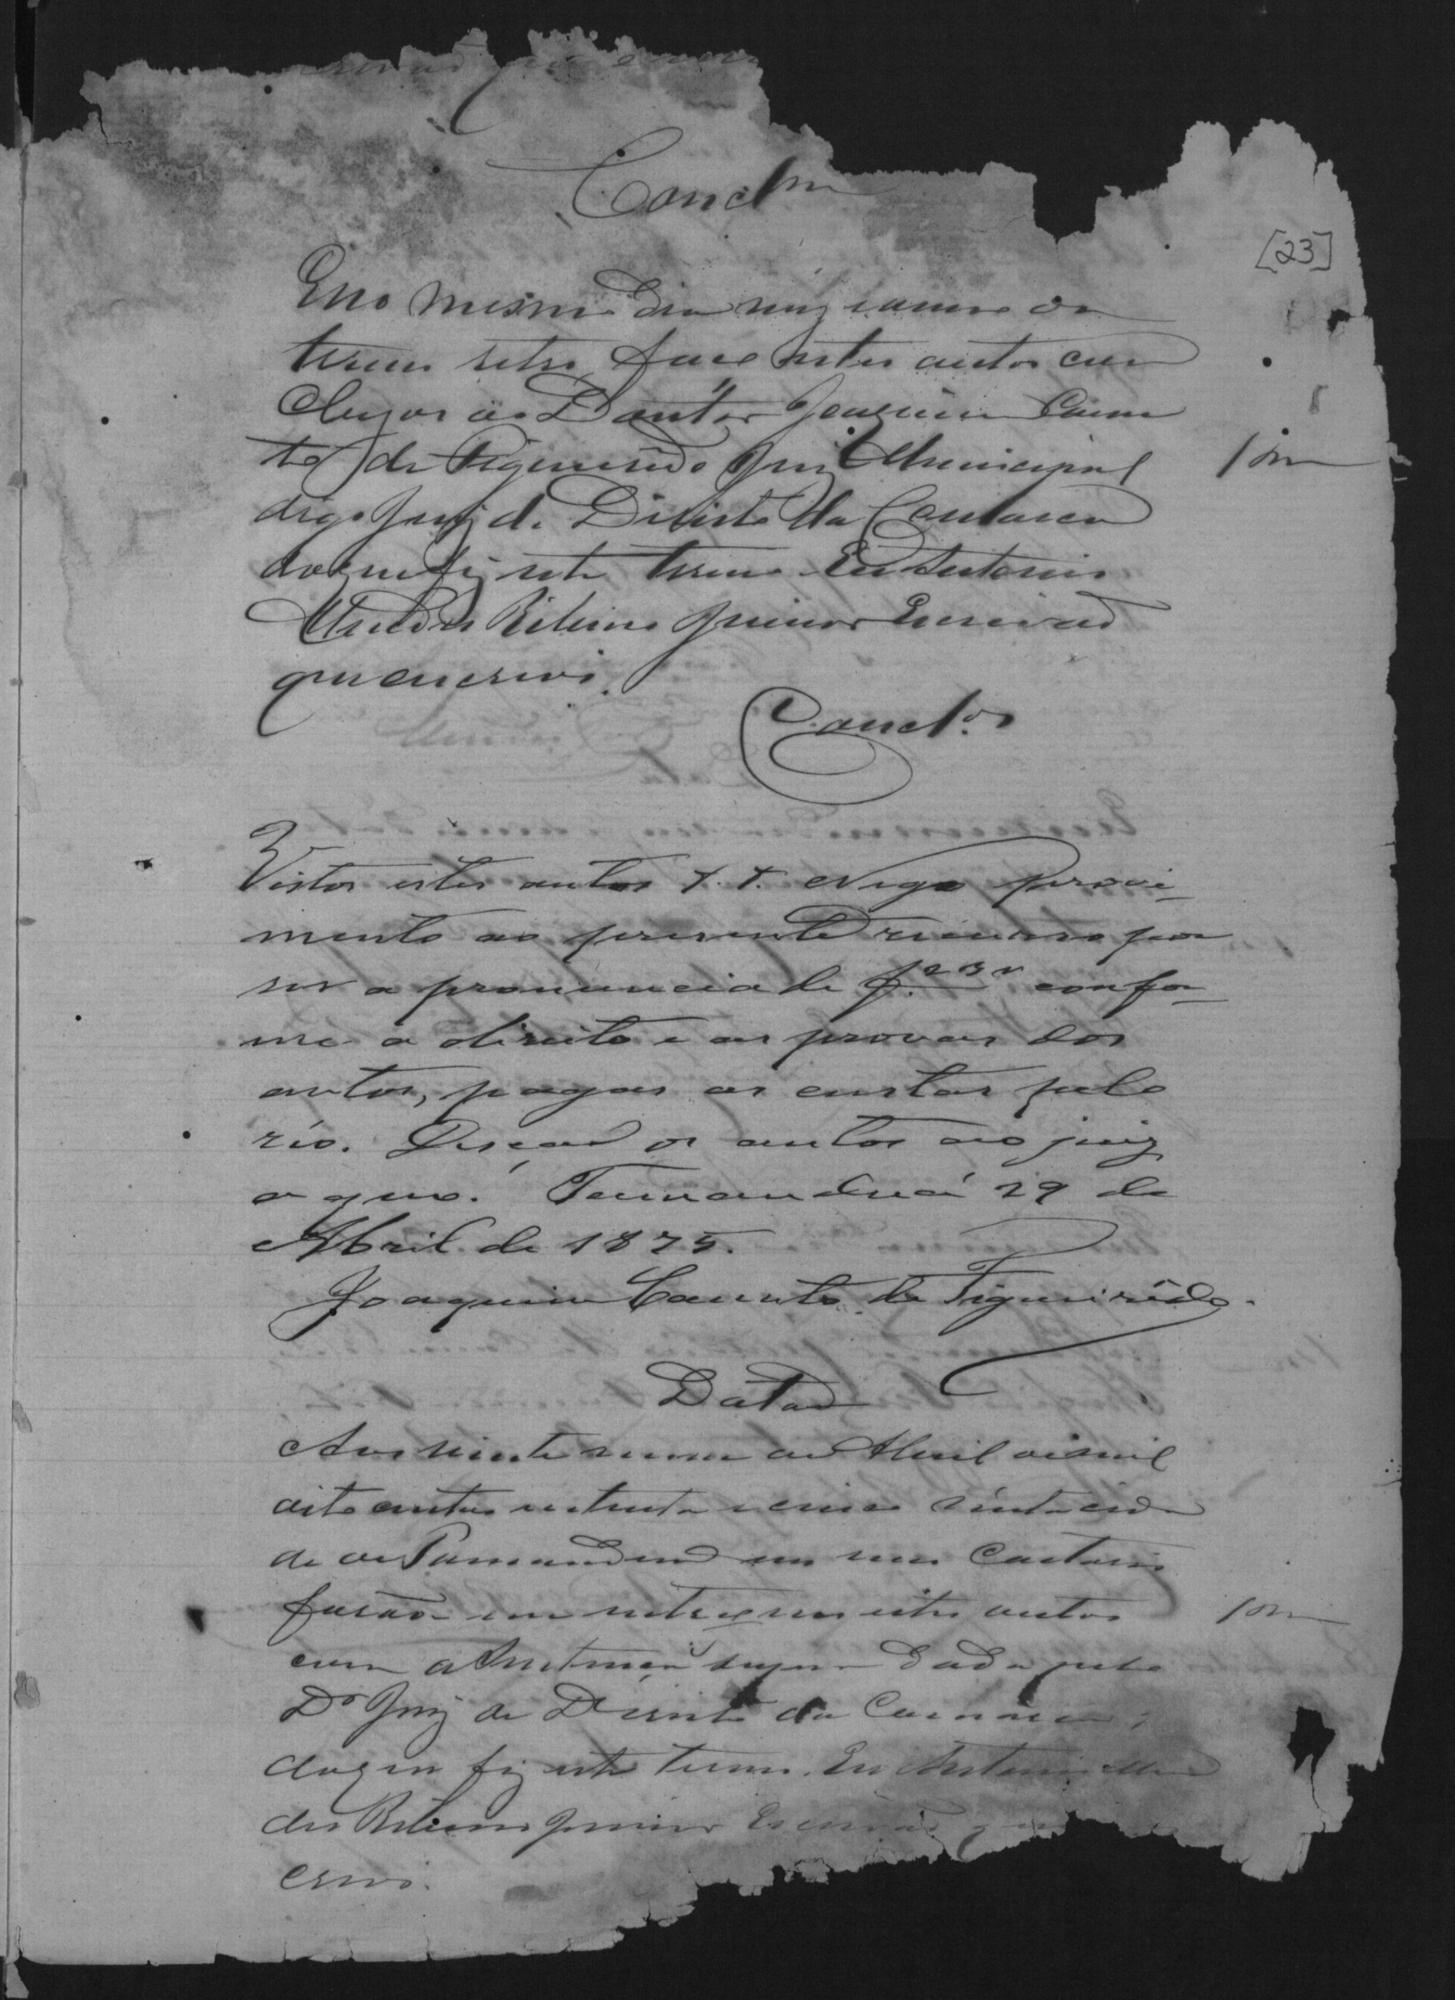 Conclm
[23]
E no mesmo dia mez e anno do
termo retro faço estes autos con
cluzos ao Doutor Joaquim Caun
to de Figueirêdo Juiz Municipal
digo Juiz de Direito da Comarca
do que fiz este termo. Eu Antonio
Mendes Ribeiro Junior Escrivão
que escrevi.
Concl.os
Vistos estes autos &. &. Nego provi-
mento ao presente recurso por
ser a pronuncia de f. 23 v confor-
me a direito e as provas dos
autos, pagas as custas pelo
réo. Desção os autos ao juiz
a quo. Tamanduá 29 de
Abril de 1875.
Joaquim Caunto de Figueirêdo.
Data
Aos vinte nove de Abril de mil
oito centos e setenta e cinco nesta cida
de de Tamanduá em meu Cartorio
forão me entregues estes autos
com a Sentença supra dada pelo
Dr Juiz de Direito da Comarca;
do que fiz este termo. Eu Antonio Men
des Ribeiro Junior Escrivão que
crevi.